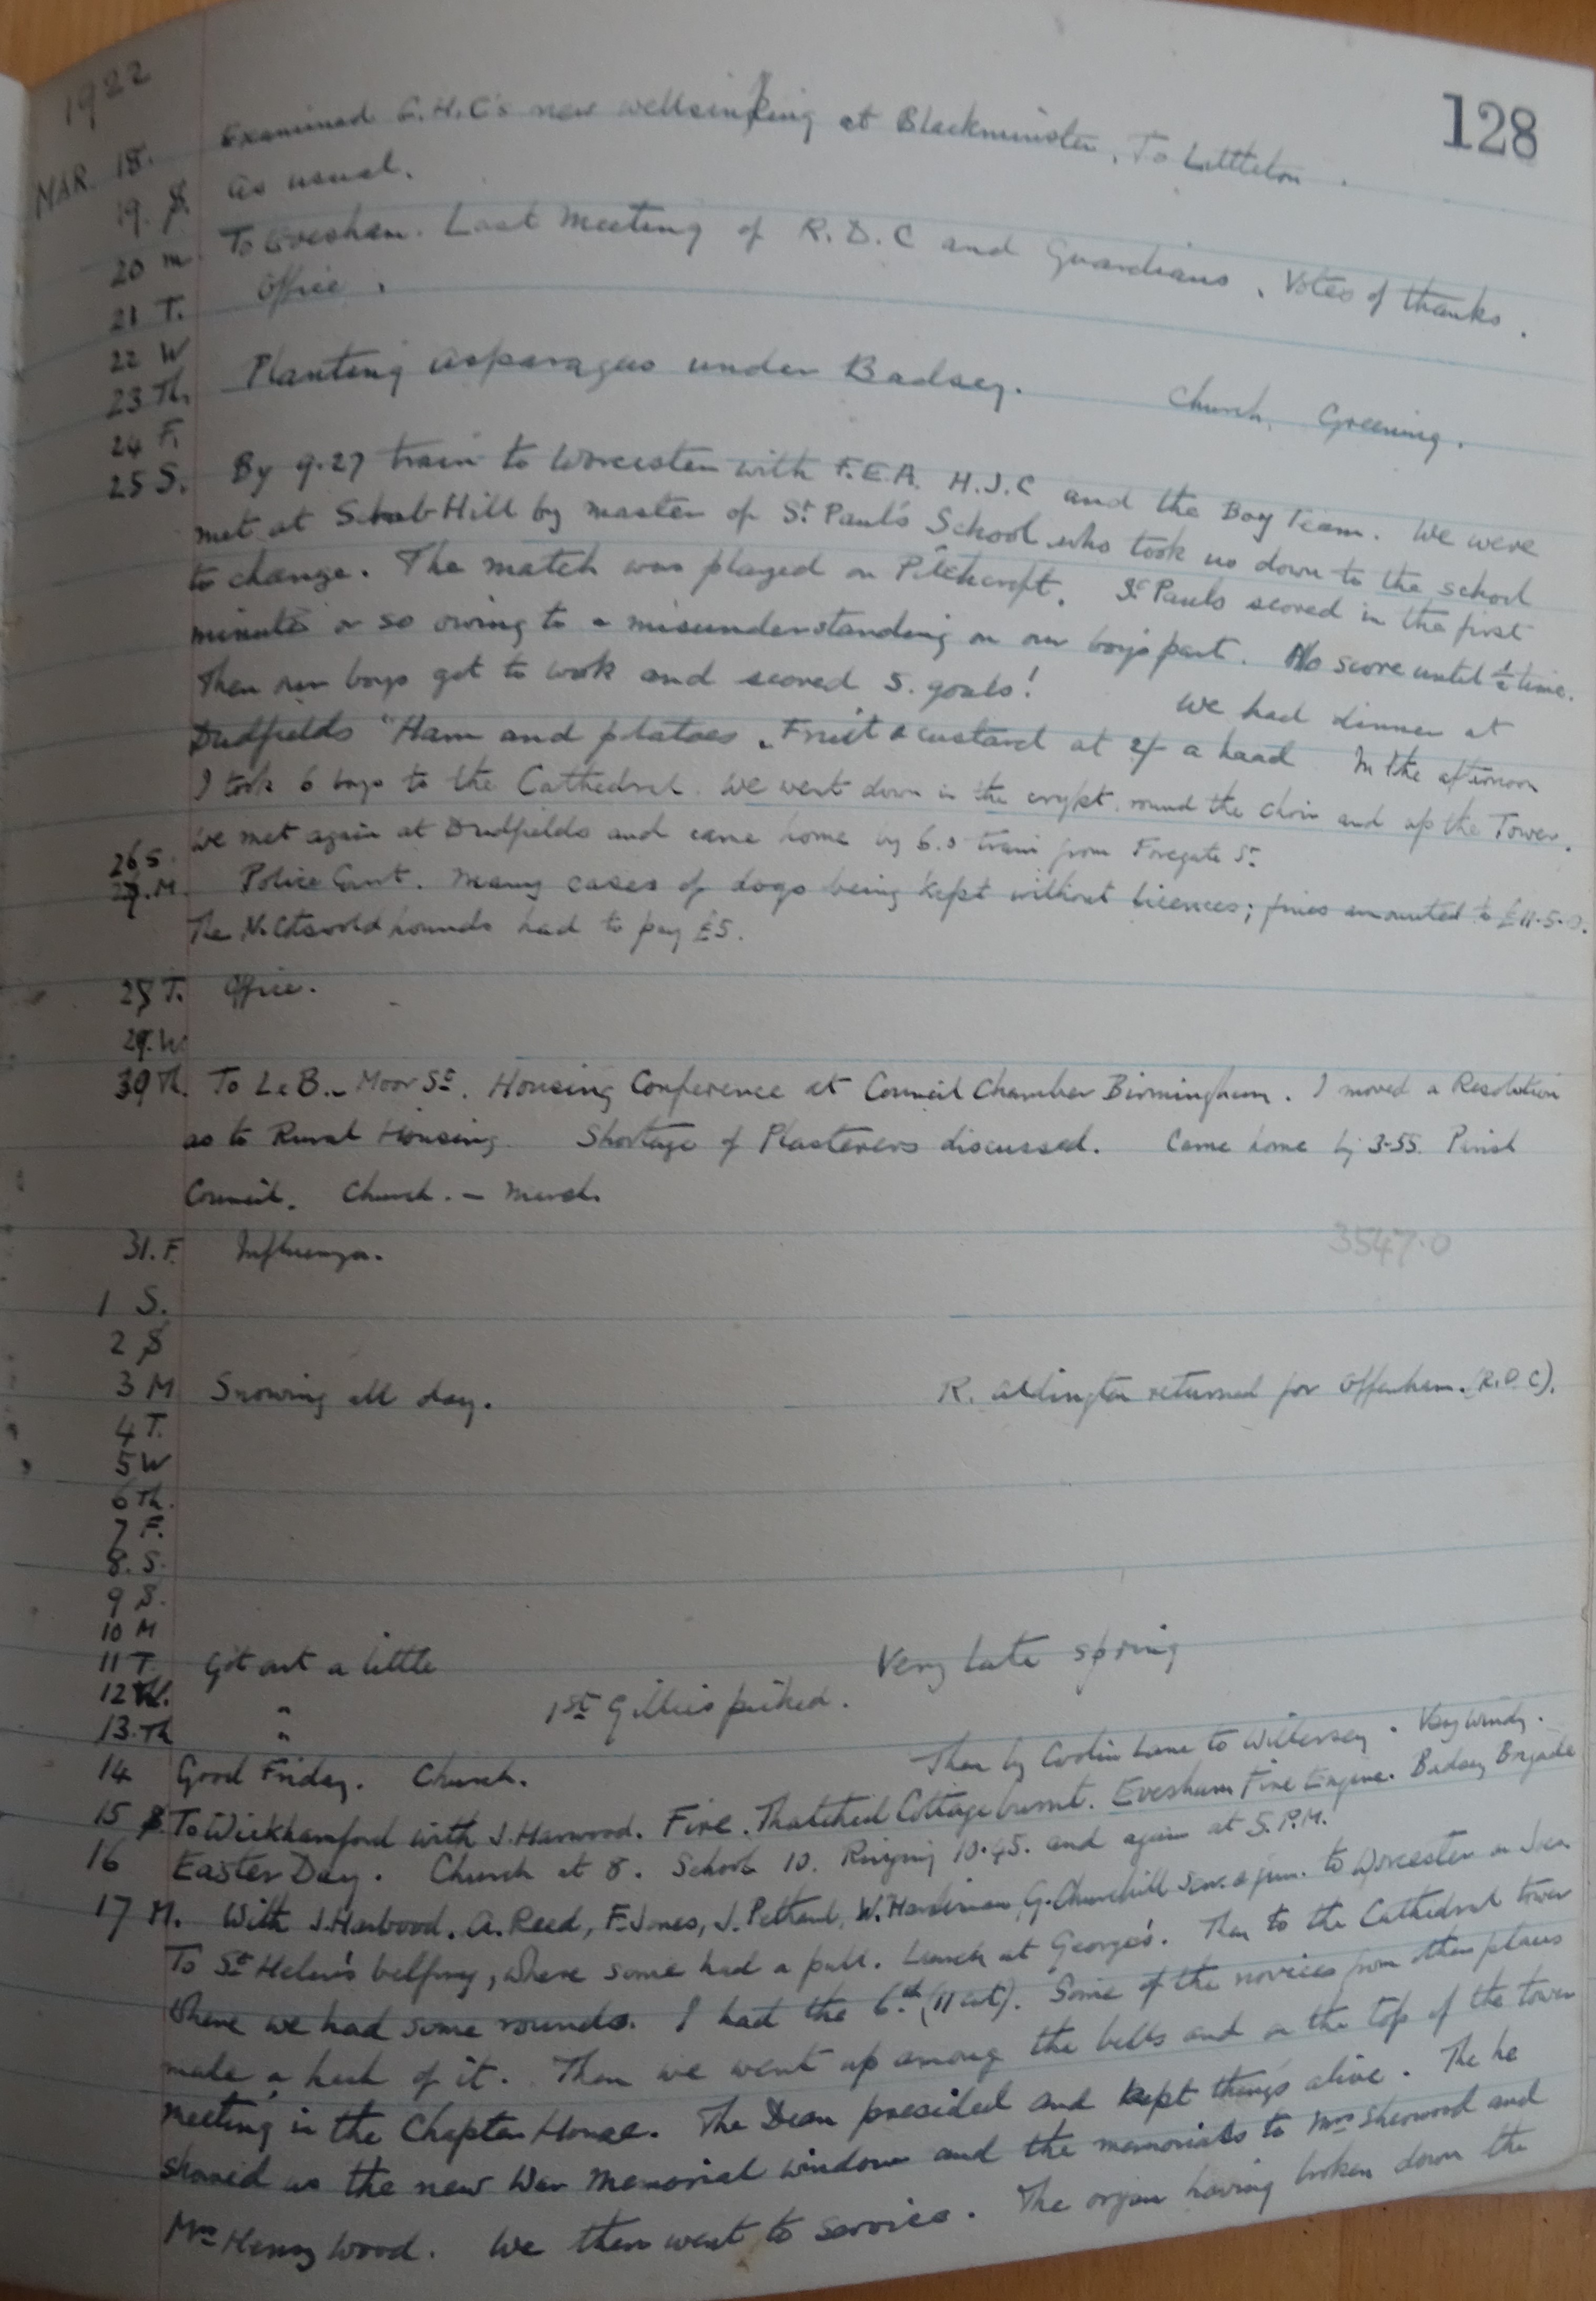 128
1922
MAR. 18. Examined G.H.C's new wellsinking at Blackminster. To Littleton.
19. S. As usual.
20 M To Evesham. Last Meeting of R.D.C and Guardians. Votes of thanks.
21 T. Office.
22 W
23 Th. Planting asparagus under Badsey. Church, Greening.
24 F.
25 S. By 9.27 train to Worcester with F.E.A. H.J.C and the Boy Team. We were
met at Schrub Hill by master of St. Paul's School who took us down to the school
to change. The match was played on Pitchcroft. St Pauls scored in the first
minute or so owing to a misunderstanding on our boys part. No score until ½ time.
Then our boys got to work and scored 5. goals! We had dinner at
Dudfields "Ham and ptatoes, Fruit & custard at 2/- a head. In the afternoon
I took 6 boys to the Cathedral. We went down in the crypt, round the choir and up the Tower.
26 S. We met again at Dudfields and came home by 6.5 train from Foregate St.
27. M. Police Court. Many cases of dogs being kept without licences; fines amounted to £11-5-0.
The N. Cotswold hounds had to pay £5.
28 T. Office.
29. W
30 Th. To L & B. - Moor St. Housing Conference at Council Chamber Birmingham. I moved a Resolution
as to Rural Housing. Shortage of Plasterers discussed. Came home by 3-55. Parish
Council. Church. -
31. F. Influenza. 3547.0
1 S.
2 S
3 M Snowing all day. R. Aldington returned for Offenham. (R.D.C).
4 T.
5 W
6 Th.
7 F.
8. S.
9 S.
10 M
11 T. Got out a little Very late spring
12 W. " 1st Gillies picked.
13. Th "
14 Good Friday. Church. Then by Lane to Willersey. Very windy.
15 S To Wickhamford with J. Harwood. Fire. Thatched Cottage burnt. Evesham Fire Engine. Badsey Brigade
16 Easter Day. Church at 8. School 10. Ringing 10.45. and again at 5. P.M.
17 M. With J. Harwood, A. Reed, F. Jones, J. Pethard, W. Hardiman, G. Churchill Sen. & jun. to Worcester
To St Helen's belfry, where some had a pull. Lunch at George's. Then to the Cathedral tower
where we had some rounds. I had the 6th (11 cwt). Some of the novices from other places
made a hash of it. Then we went up among the bells and on the top of the tower
Meeting in the Chapter House. The Dean presided and kept things alive. The he
showed us the new War Memorial window and the memorials to Mrs Sherwood and
Mrs Henry Wood. We then went to service. The organ having broken down the